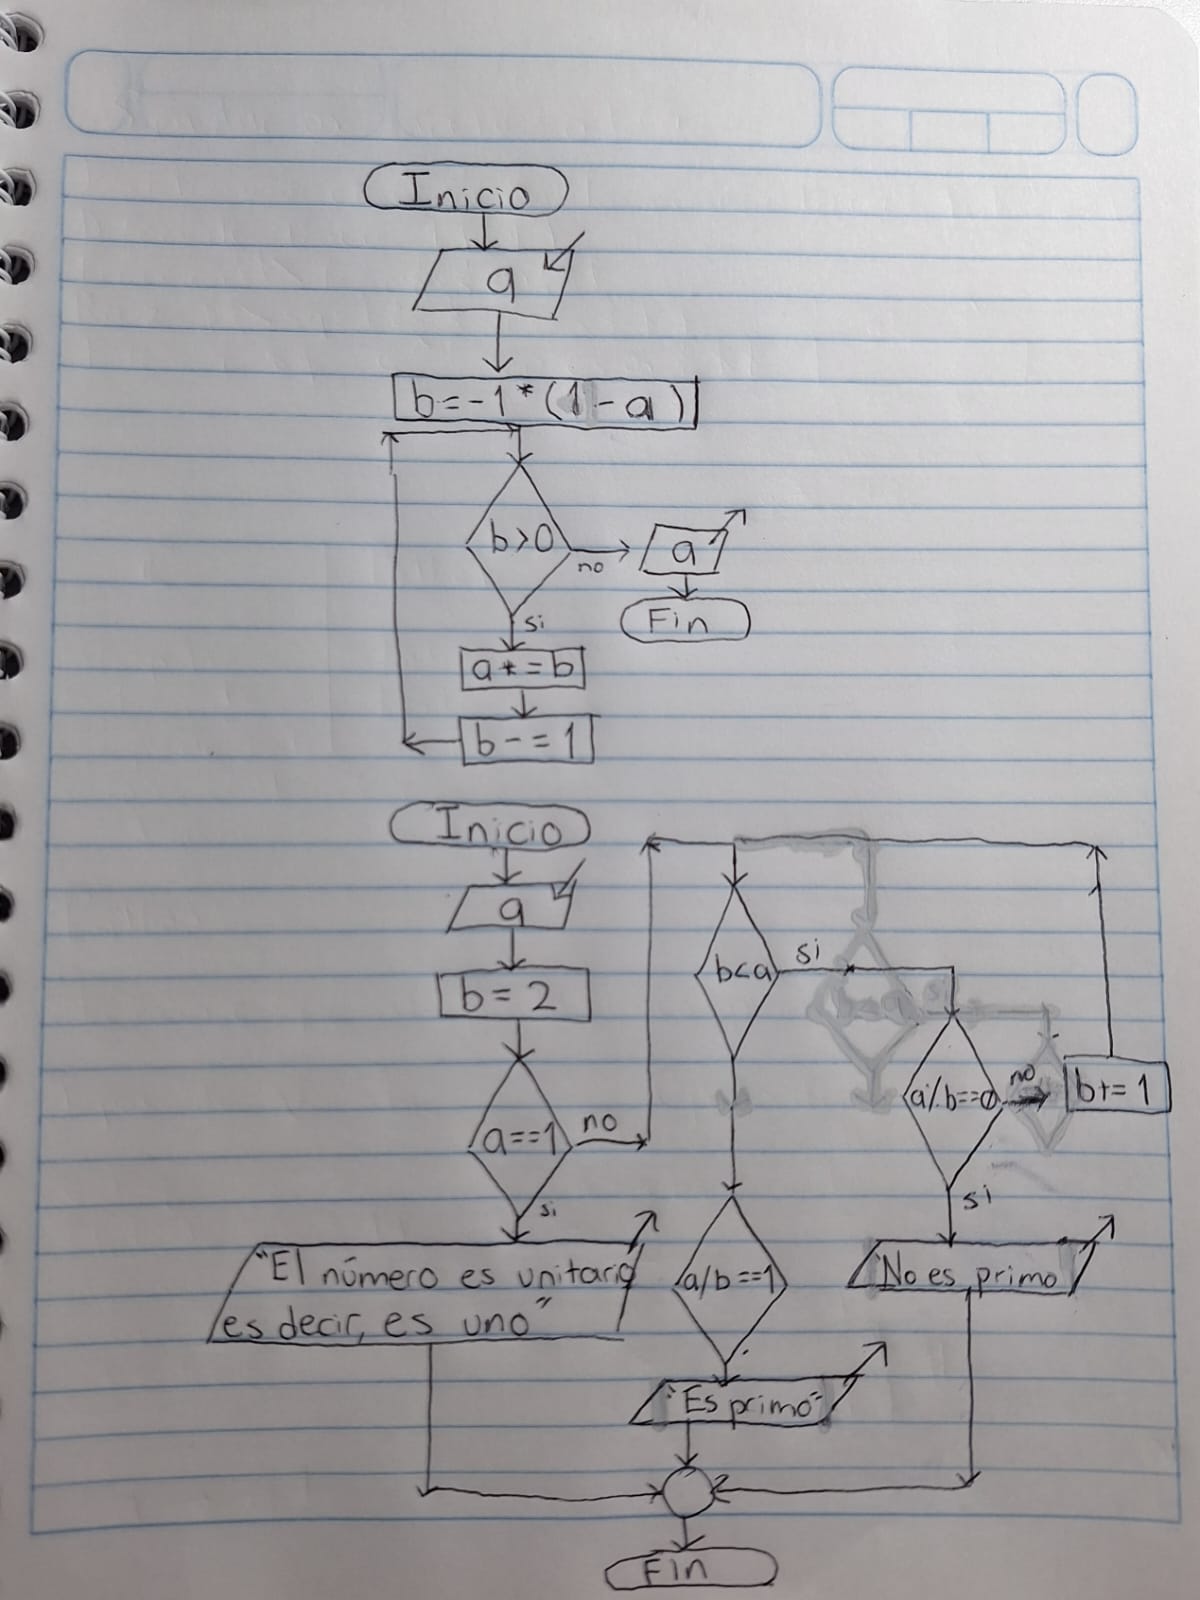 Inicio
a
b=-1*(1-a)
b>0
no
a
Fin
si
a*=b
b-=1
Inicio
a
b=2
a==1
no
si
"El número es unitario
es decir, es uno"
b<a
si
a%b==0
no
b+=1
si
"No es primo
a/b==1
"Es primo"
Fin